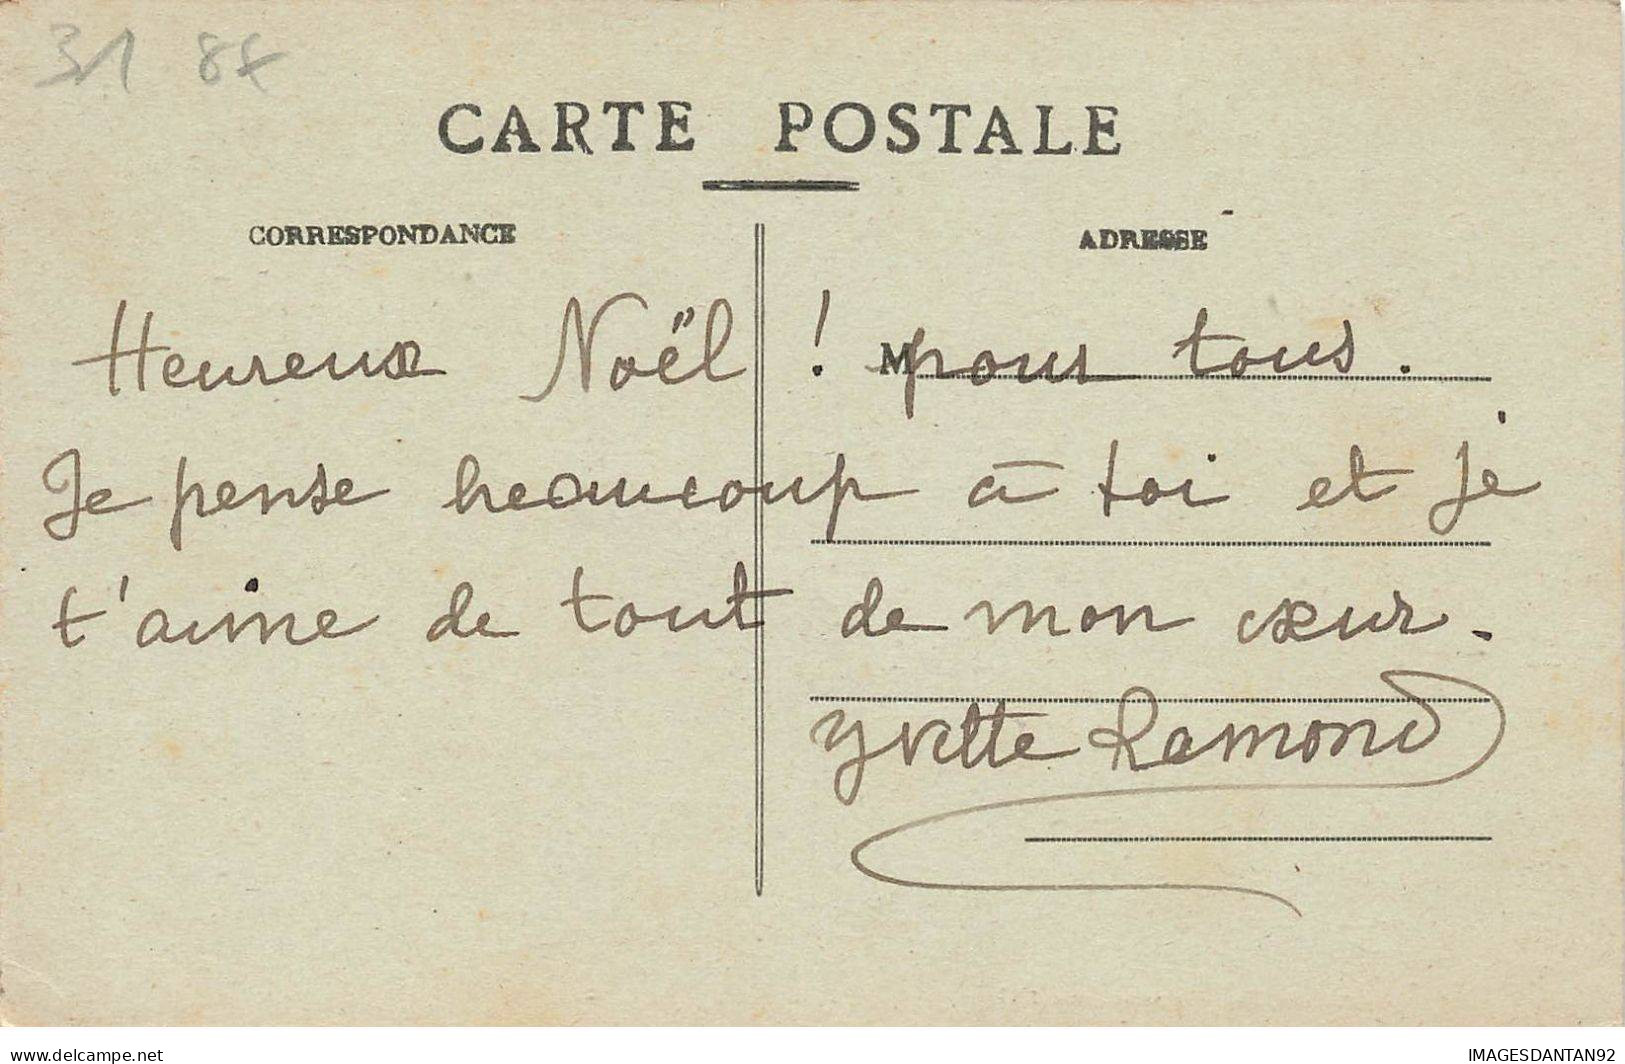 31 84
CARTE POSTALE
CORRESPONDANCE
ADRESSE
Heureux Noël ! M pour tous.
Je pense beaucoup à toi et je
t'aime de tout de mon cœur.
Yvette Ramond
www.delcampe.net
IMAGESDANTAN92